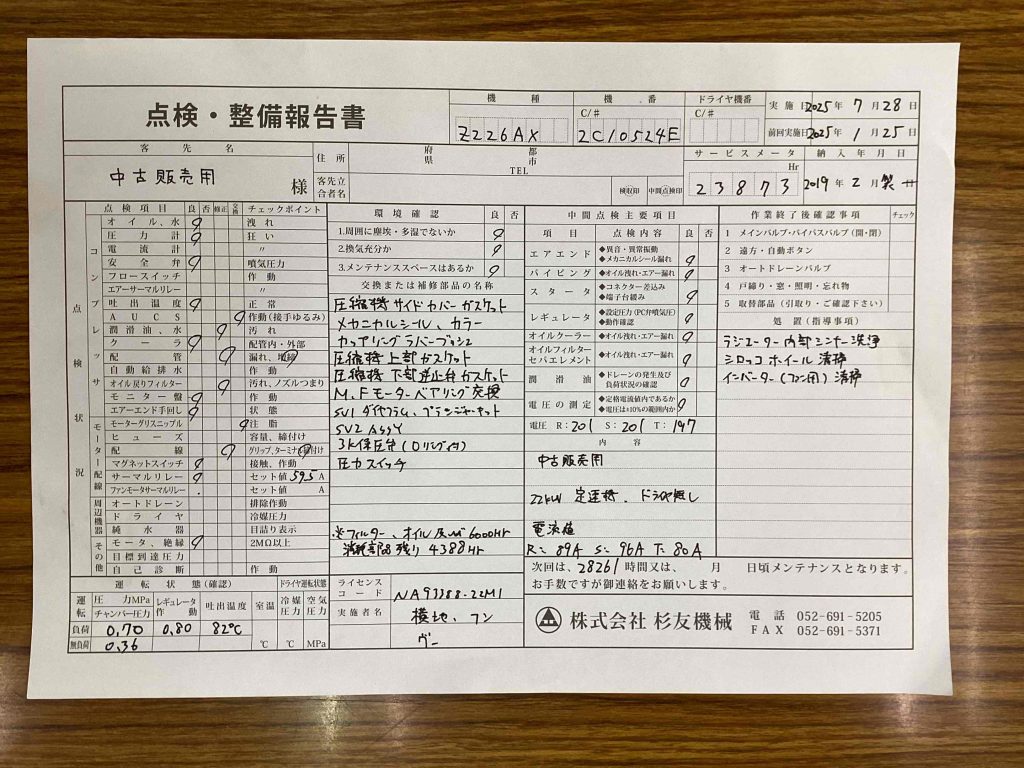 点検・整備報告書
機種 Z226AX
機番 C/# 2C10524E
ドライヤ機番 C/#
実施日 2025年 7月 28日
前回実施日 2025年 1月 25日
客先名
中古販売用 様
住所 府県 都市
TEL
客先立合者名
検収印 中間点検印
サービスメータ Hr 23873
納入年月日 2019年 2月 製 日
点検状況
点検項目 良 否 修正 交換 チェックポイント
コンプレッサ
オイル、水 洩れ
圧力計 狂い
電流計 〃
安全弁 噴気圧力
フロースイッチ 作動
エアーサーマルリレー 〃
吐出温度 正常
AUCS 作動(接手ゆるみ)
潤滑油、水 汚れ
クーラ 配管内・外部
配管 漏れ、
自動給排水 作動
オイル戻りフィルター 汚れ、ノズルつまり
モニター盤 作動
エアーエンド手回し 状態
モーター配線
モーターグリスニップル 注脂
ヒューズ 容量、締付け
配線 グリップ、ターミナル締付け
マグネットスイッチ 接触、作動
サーマルリレー セット値 59.5 A
ファンモータサーマルリレー セット値 A
周辺機器
オートドレーン 排除作動
ドライヤ 冷媒圧力
純水器 目詰り表示
その他
モータ、絶縁 2MΩ以上
目標到達圧力
自己診断 作動
運転状態(確認) ドライヤ運転状態
運転 圧力MPa チャンバー圧力 レギュレータ作動 吐出温度 室温 冷媒圧力 空気圧力
負荷 0.70 0.80 82℃
無負荷 0.36 ℃ ℃ MPa
環境確認 良 否
1.周囲に塵埃・多湿でないか
2.換気充分か
3.メンテナンススペースはあるか
交換または補修部品の名称
圧縮機サイドカバーガスケット
メカニカルシール、カラー
カップリングラバーブッシュ
圧縮機上部ガスケット
圧縮機下部逆止弁ガスケット
M、Fモーターベアリング交換
SV1 ダイヤフラム、プランジャーキット
SV2 ASSY
3K保圧弁(Oリング付)
圧力スイッチ
※フィルター、オイル及び 6000Hr
消耗部品残り 4388Hr
ライセンスコード NA93388-22M1
実施者名 横地、フン
ヴー
中間点検主要項目
項目 点検内容 良 否
エアエンド ◆異音・異常振動 ◆メカニカルシール漏れ
パイピング ◆オイル洩れ・エアー漏れ
スタータ ◆コネクター差込み ◆端子台緩み
レギュレータ ◆設定圧力(PC弁噴気圧) ◆動作確認
オイルクーラー ◆オイル洩れ・エアー漏れ
オイルフィルター セパエレメント ◆オイル洩れ・エアー漏れ
潤滑油 ◆ドレーンの発生及び負荷状況の確認
電圧の測定 ◆定格電流値内であるか ◆電圧は±10%の範囲内か
電圧 R:201 S:201 T:197
内容
中古販売用
22kW 定速機、ドライヤ無し
電流値
R= 89A S= 96A T= 80A
作業終了後確認事項 チェック
1 メインバルブ・バイパスバルブ(開・閉)
2 遠方・自動ボタン
3 オートドレーンバルブ
4 戸締り・窓・照明・忘れ物
5 取替部品(引取り・ご確認下さい)
処置(指導事項)
ラジエーター内部シンナー洗浄
シロッコホイール清掃
インバーター(ファン用)清掃
次回は、28261時間又は、 月 日頃メンテナンスとなります。
お手数ですが御連絡をお願いします。
株式会社 杉友機械
電話 052-691-5205
FAX 052-691-5371